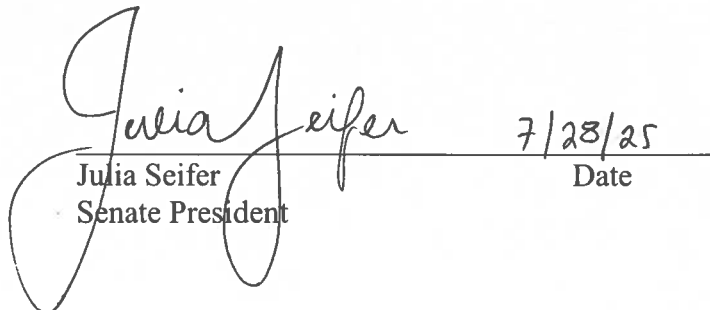 Julia Seifer 7/28/25
Julia Seifer Date
Senate President